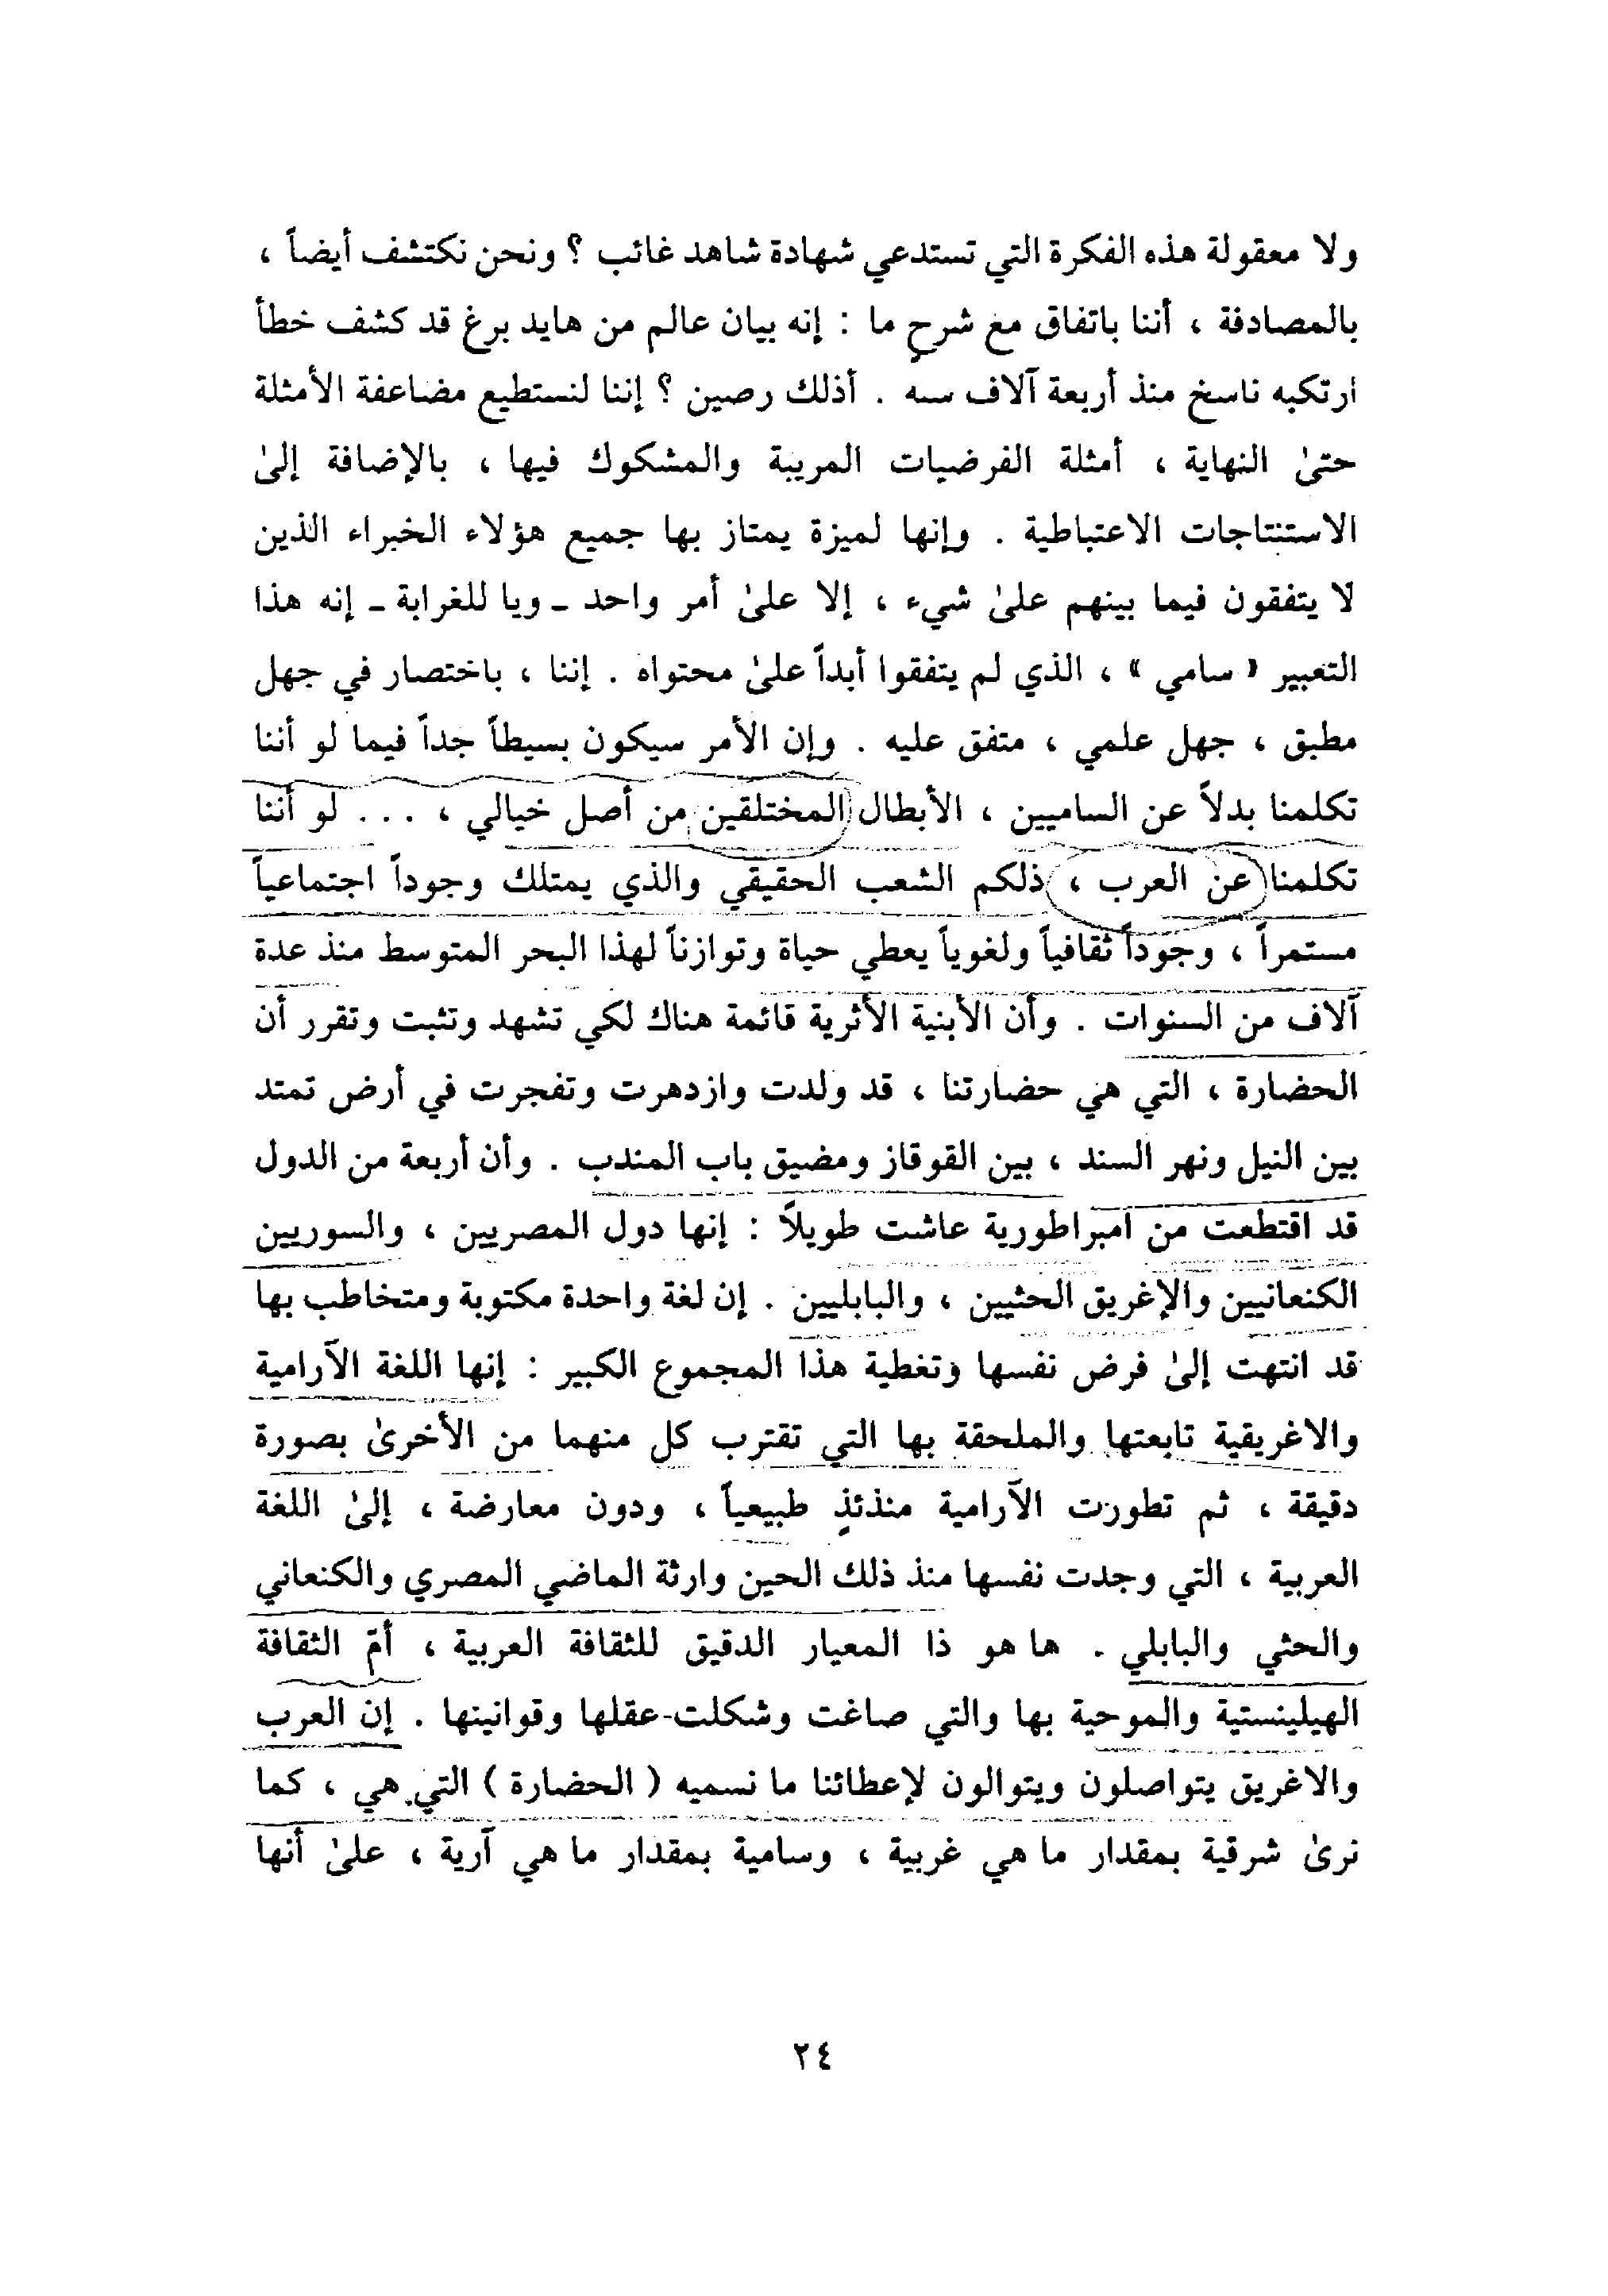 ولا معقولة هذه الفكرة التي تستدعي شهادة شاهد غائب ؟ ونحن نكتشف أيضاً ،
بالمصادفة ، أننا باتفاق مع شرحٍ ما : إنه بيان عالم من هايد برغ قد كشف خطأ
ارتكبه ناسخ منذ أربعة آلاف سنه . أذلك رصين ؟ إننا لنستطيع مضاعفة الأمثلة
حتىٰ النهاية ، أمثلة الفرضيات المريبة والمشكوك فيها ، بالإضافة إلىٰ
الاستنتاجات الاعتباطية . وإنها لميزة يمتاز بها جميع هؤلاء الخبراء الذين
لا يتفقون فيما بينهم علىٰ شيء ، إلا علىٰ أمر واحد ـ ويا للغرابة ـ إنه هذا
التعبير « سامي » ، الذي لم يتفقوا أبداً علىٰ محتواه . إننا ، باختصار في جهل
مطبق ، جهل علمي ، متفق عليه . وإن الأمر سيكون بسيطاً جداً فيما لو أننا
تكلمنا بدلاً عن الساميين ، الأبطال المختلقين من أصل خيالي ، . . . لو أننا
تكلمنا عن العرب ، ذلكم الشعب الحقيقي والذي يمتلك وجوداً اجتماعياً
مستمراً ، وجوداً ثقافياً ولغوياً يعطي حياة وتوازناً لهذا البحر المتوسط منذ عدة
آلاف من السنوات . وأن الأبنية الأثرية قائمة هناك لكي تشهد وتثبت وتقرر أن
الحضارة ، التي هي حضارتنا ، قد ولدت وازدهرت وتفجرت في أرض تمتد
بين النيل ونهر السند ، بين القوقاز ومضيق باب المندب . وأن أربعة من الدول
قد اقتطعت من امبراطورية عاشت طويلاً : إنها دول المصريين ، والسوريين
الكنعانيين والإغريق الحثيين ، والبابليين . إن لغة واحدة مكتوبة ومتخاطب بها
قد انتهت إلىٰ فرض نفسها وتغطية هذا المجموع الكبير : إنها اللغة الآرامية
والاغريقية تابعتها والملحقة بها التي تقترب كل منهما من الأخرىٰ بصورة
دقيقة ، ثم تطورت الآرامية منذئذٍ طبيعياً ، ودون معارضة ، إلىٰ اللغة
العربية ، التي وجدت نفسها منذ ذلك الحين وارثة الماضي المصري والكنعاني
والحثي والبابلي . ها هو ذا المعيار الدقيق للثقافة العربية ، أمّ الثقافة
الهيلينستية والموحية بها والتي صاغت وشكلت-عقلها وقوانينها . إن العرب
والاغريق يتواصلون ويتوالون لإعطائنا ما نسميه ( الحضارة ) التي هي ، كما
نرىٰ شرقية بمقدار ما هي غربية ، وسامية بمقدار ما هي آرية ، علىٰ أنها
٢٤